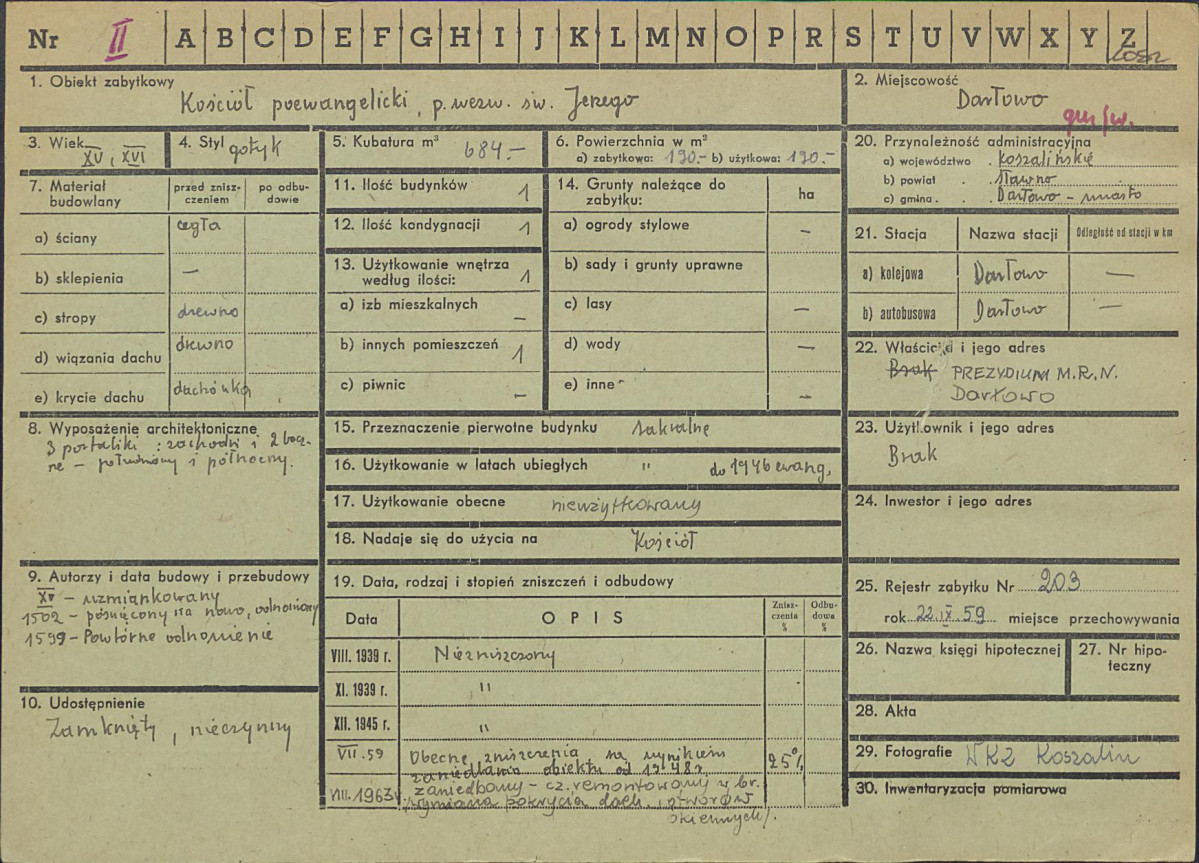 Nr II A B C D E F G H I J K L M N O P R S T U V W X Y Z
1. Obiekt zabytkowy
Kościół poewangelicki, p. wezw. św. Jerzego
2. Miejscowość
Darłowo
3. Wiek XV, XVI
4. Styl gotyk
5. Kubatura m³ 684.-
6. Powierzchnia w m²
a) zabytkowa: 190.- b) użytkowa: 190.-
7. Materiał budowlany
przed zniszczeniem
po odbudowie
a) ściany cegła
b) sklepienia —
c) stropy drewno
d) wiązania dachu drewno
e) krycie dachu dachówka
8. Wyposażenie architektoniczne
3 portaliki : zachodni i 2 bocz-
ne – południowy i północny.
9. Autorzy i data budowy i przebudowy
XV – wzmiankowany
1502 – poświęcony na nowo, odnowiony
1599 – Powtórne odnowienie
10. Udostępnienie
Zamknięty, nieczynny
11. Ilość budynków 1
12. Ilość kondygnacji 1
13. Użytkowanie wnętrza
według ilości: 1
a) izb mieszkalnych –
b) innych pomieszczeń 1
c) piwnic –
14. Grunty należące do
zabytku: ha
a) ogrody stylowe –
b) sady i grunty uprawne
c) lasy —
d) wody —
e) inne –
15. Przeznaczenie pierwotne budynku sakralne
16. Użytkowanie w latach ubiegłych " do 1946 ewang.
17. Użytkowanie obecne nieużytkowany
18. Nadaje się do użycia na Kościół
19. Data, rodzaj i stopień zniszczeń i odbudowy
Data OPIS Zniszczenia % Odbudowa %
VIII. 1939 r. Niezniszczony
XI. 1939 r. "
XII. 1945 r. "
VII. 59 Obecne zniszczenia są wynikiem 25%
zaniedbania obiektu od 1948 r.
VIII. 1963 r. zaniedbany – cz. remontowany w br.
(wymiana pokrycia dach. i otworów
okiennych).
20. Przynależność administracyjna
a) województwo koszalińskie
b) powiat Sławno
c) gmina Darłowo – miasto
21. Stacja Nazwa stacji Odległość od stacji w km
a) kolejowa Darłowo —
b) autobusowa Darłowo —
22. Właściciel i jego adres
Brak PREZYDIUM M.R.N.
Darłowo
23. Użytkownik i jego adres
Brak
24. Inwestor i jego adres
25. Rejestr zabytku Nr 203
rok 22.IX.59 miejsce przechowywania
26. Nazwa księgi hipotecznej
27. Nr hipoteczny
28. Akta
29. Fotografie WKZ Koszalin
30. Inwentaryzacja pomiarowa